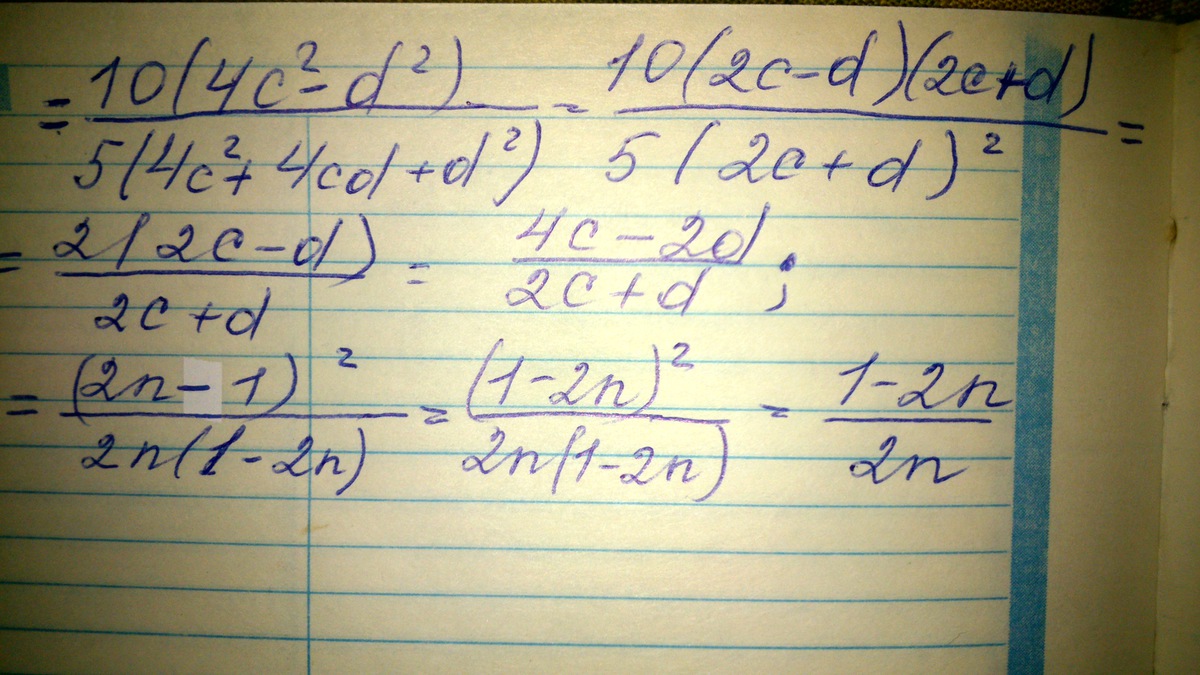 = 10(4c² - d²) / 5(4c² + 4cd + d²) = 10(2c-d)(2c+d) / 5(2c+d)² =
= 2(2c-d) / 2c+d = 4c-2d / 2c+d ;
= (2n-1)² / 2n(1-2n) = (1-2n)² / 2n(1-2n) = 1-2n / 2n